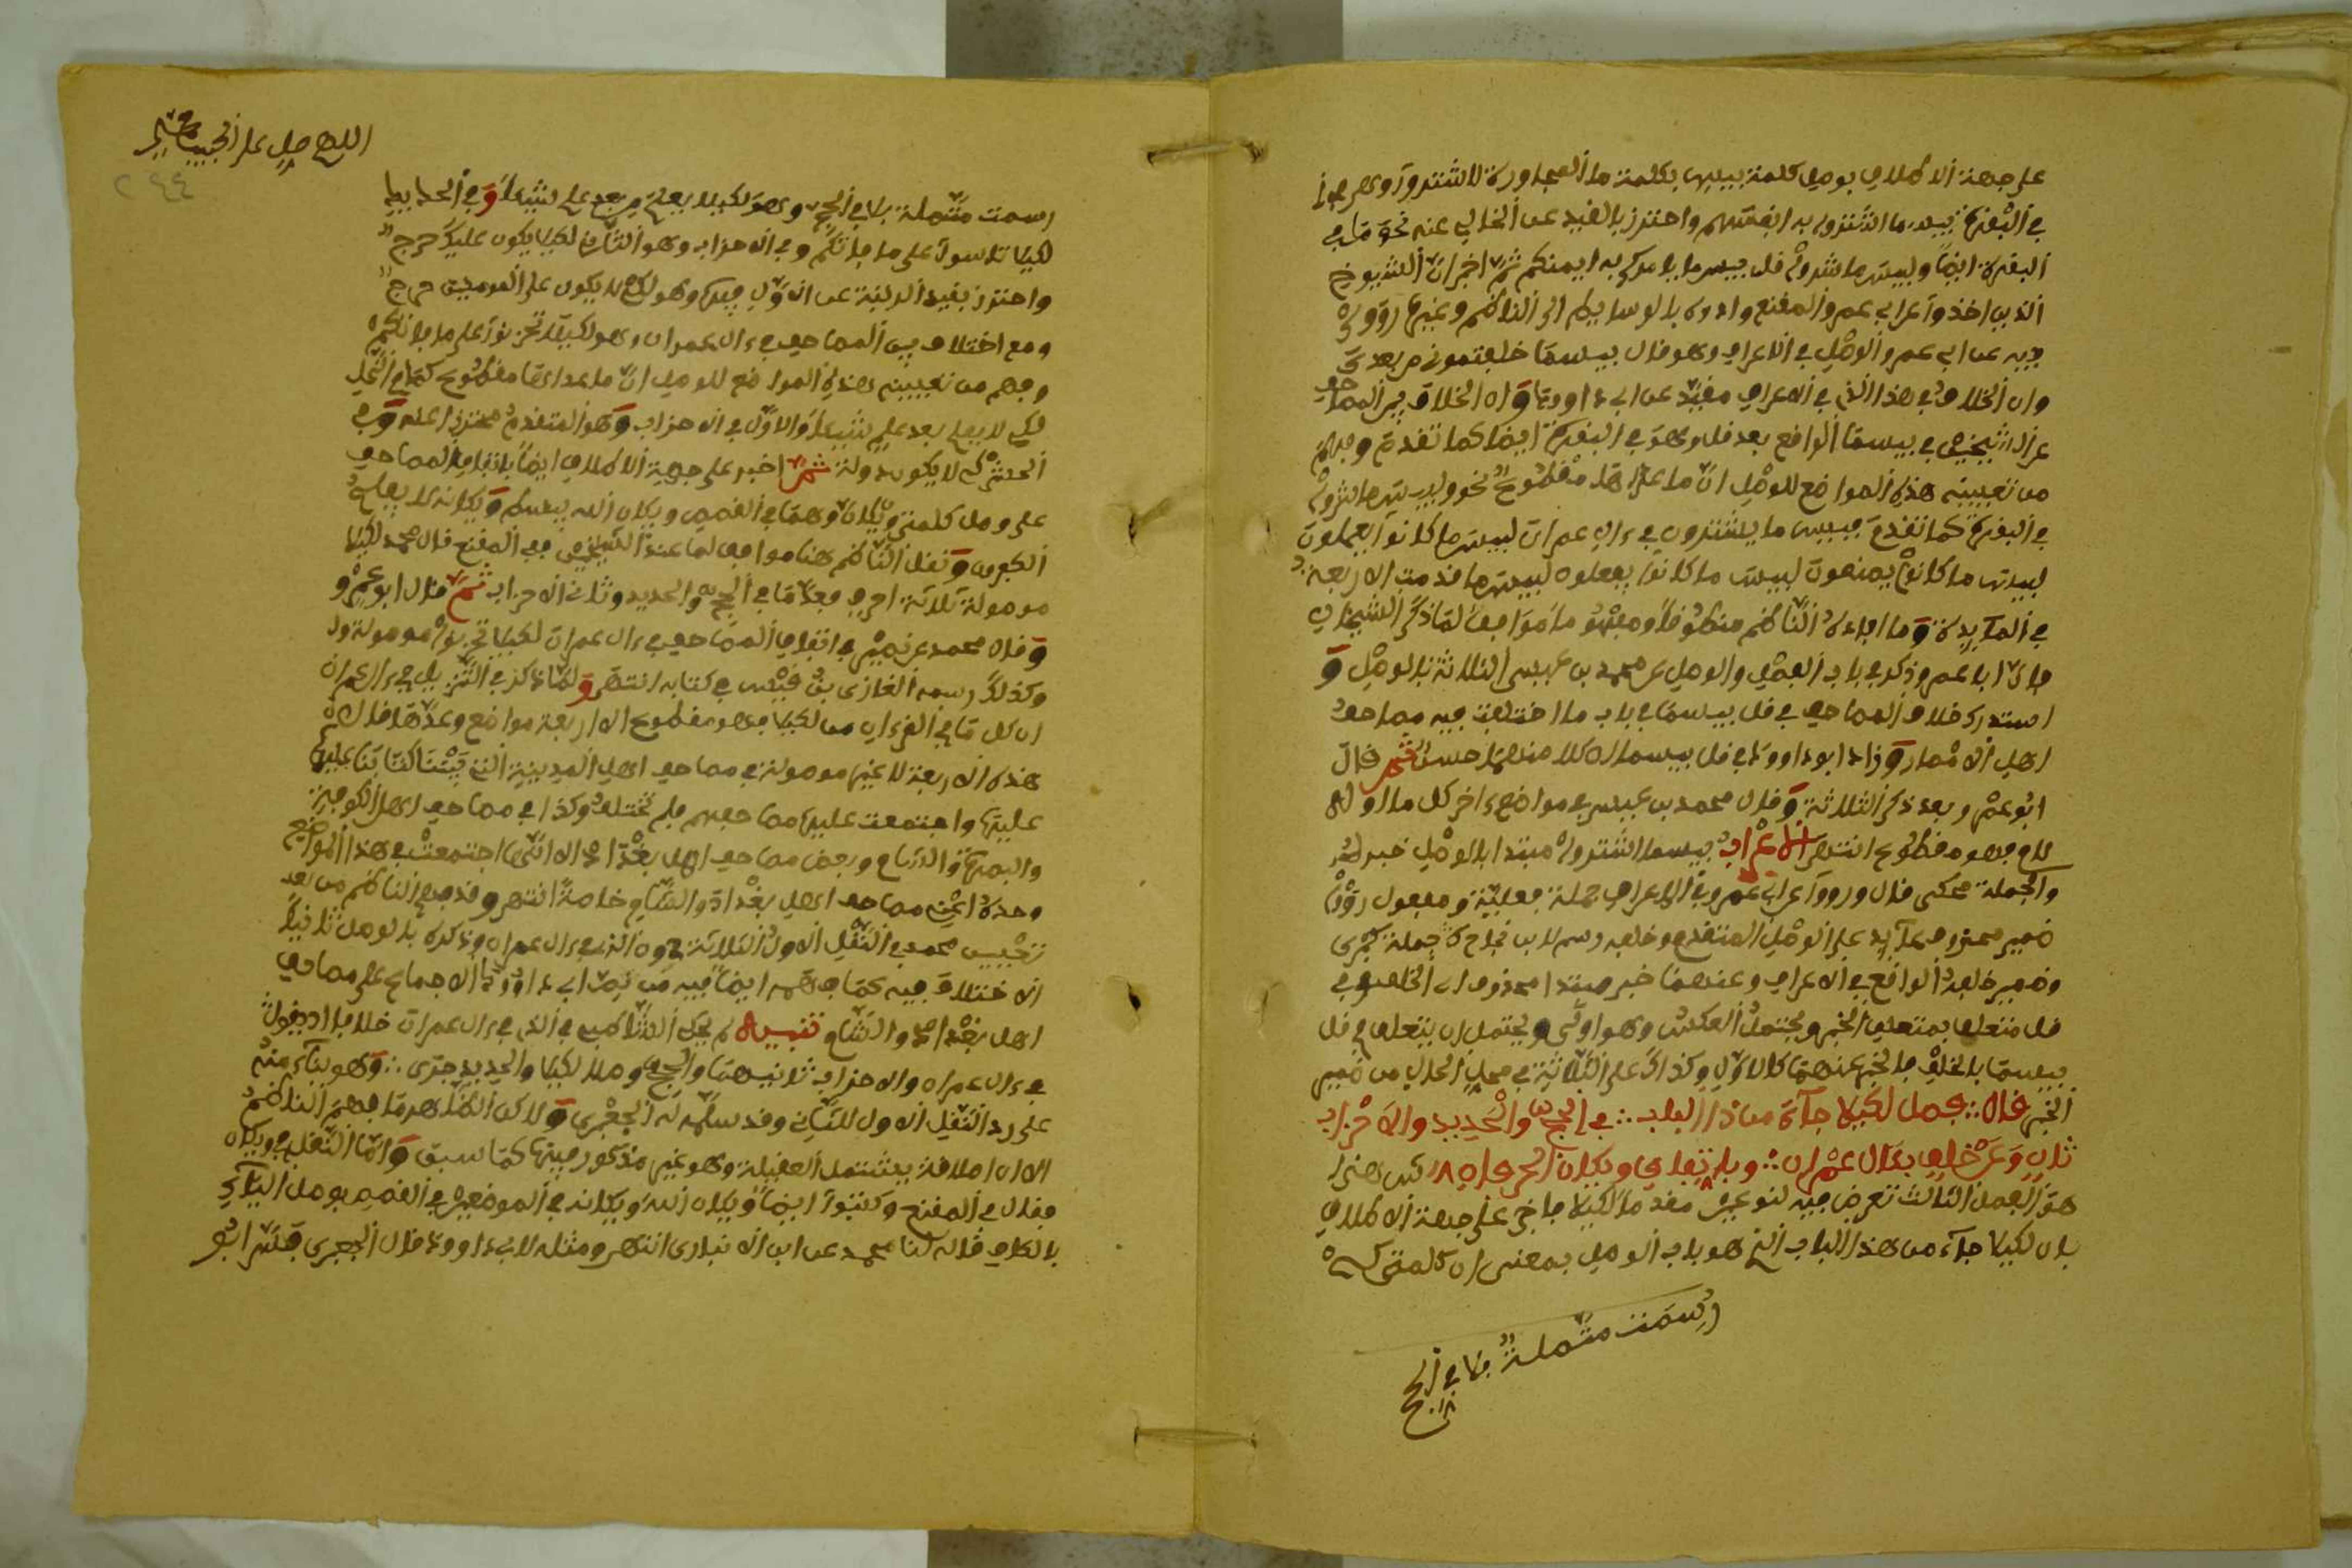 على جهة الاطلاق بوصل كلمة بيس بكلمة ما المجاورة لاشتروا وهو
في البقرة بيسما اشتروا به انفسهم واحترز بالقيد عن الخالي عنه نحو ما في
البقرة ايضا ولبيس ما شروا قل بيسما يامركم به ايمنكم ثم اخبر ان الشيوخ
الذين اخذوا عن ابي عمرو المقنع وادوه بالوسايط الى الناظم وغيره رووا
فيه عن ابي عمرو الوصل في الاعراف وهو قال بيسما خلفتموني من بعدي
وان الخلاف في هذا الذي في الاعراف مقيد عن ابي داود وان الخلاف بين المصاحف
عن الشيخين في بيسما الواقع بعد قل وهو في البقرة ايضا كما تقدم وفهم
من تعيينه هذه المواضع للوصل ان ما عداها مقطوع نحو ولبيس ما شروا
في البقرة كما تقدم فبيس ما يشترون في ءال عمران لبيس ما كانوا يعملون
لبيس ما كانوا يصنعون لبيس ما كانوا يفعلون لبيس ما قدمت الاربعة
في المائدة وما افاده الناظم منطوقا ومفهوما موافق لما ذكر الشيخان
فان ابا عمرو ذكر في باب القطع والوصل عن محمد بن عيسى الثلاثة بالوصل و
استدرك خلاف المصاحف في قل بيسما في باب ما اختلفت فيه مصاحف
اهل الامصار وزاد ابو داود في قل بيسما ان كلا منهما حسن ثم قال
ابو عمرو بعد ذكر الثلاثة وقال محمد بن عيسى في مواضع ءاخر كل ما اوله
لام فهو مقطوع انتهى الاعراب بيسما اشتروا مبتدا بالوصل خبره
والجملة محكى قال ورووا عن ابي عمرو في الاعراف جملة فعلية ومفعول رووا
ضمير محذوف عائد على الوصل المتقدم وخلف رسم لابن نجاح جملة كبرى
وضمير خلفه الواقع في الاعراف وعنهما خبر مبتدا محذوف اي الخلف وفي
قل متعلق بمتعلق الخبر ويحتمل العكس وهو اولى ويحتمل ان يتعلق في قل
بيسما بالخلف فالخبر عنهما كالاول وكذاك على الثانية في محل الحال من ضمير
الخبر قال فصل لكيلا جاء من ذا الباب في الحج والحديد والاحزاب
ثان وعن خلف بئال عمران وباتفاق ويكان الحرفان ذكر هنا
هو الفصل الثالث تعرض فيه لنوعين مقدما لكيلا فاخبر على جهة الاطلاق
بان لكيلا جاء من هذا الباب الذي هو باب الوصل بمعنى ان كلمتى كي
رسمت متصلة بلا في الحج
اللهم صل على الحبيب
٢٤٤
رسمت متصلة بلا في الحج وهو لكيلا يعلم من بعد علم شيئا وفي الحديد
لكيلا تاسوا على ما فاتكم وفي الاحزاب وهو الثاني لكيلا يكون عليك حرج
واحترز بقيد الثانية عن الاول فيها وهو لكي لا يكون على المومنين حرج
ومع اختلاف بين المصاحف في ءال عمران وهو لكيلا تحزنوا على ما فاتكم
وفهم من تعيينه هذه المواضع للوصل ان ما عداها مقطوع كما في النحل
لكي لا يعلم بعد علم شيئا والاول في الاحزاب وهو المتقدم محترزا عنه وفي
الحشر كي لا يكون دولة ثم اخبر على جهة الاطلاق ايضا باتفاق المصاحف
على وصل كلمتى ويكان وهما في القصص ويكان الله يبسط ويكانه لا يفلح
الكفرون ونقل الناظم هنا موافق لما عند الشيخين ففي المقنع قال محمد لكيلا
موصولة ثلاثة احرف فعد ما في الحج والحديد وثاني الاحزاب ثم قال ابو عمرو
وقال محمد بن نصير في اتفاق المصاحف في ءال عمران لكيلا تحزنوا موصولة
وكذلك رسمه الغازي بن قيس في كتابه انتهى ولما ذكر في التنزيل في ءال عمران
ان كل ما في القرءان من لكيلا فهو مقطوع الا اربعة مواضع وعدها قال
هذه الاربعة لا غيرها موصولة في مصاحف اهل المدينة التي بنينا كتابنا عليها
عليها واجتمعت عليها مصاحفهم فلم تختلف وكذا في مصاحف اهل الكوفة
والبصرة والشام وبعض مصاحف اهل بغداد الا انها اجتمعت في هذا المواضع
وحده اعني مصاحف اهل بغداد والشام خاصة انتهى وقد فهم الناظم من بعد
تخصيص محمد في النقل الاول الثلاثة دون الذي في ءال عمران وذكره بالوصل ثانيا
الاختلاف فيه كما فهمه ايضا فيه من نص ابي داود الاجماع على مصاحف
اهل بغداد والشام تنبيه لم يحك الشاطبي في الذي في ءال عمران خلافا اذ يقول
في ءال عمران والاحزاب ثانيهما والحج وصلا لكيلا والحديد جرى وهو بناء منه
على رد النقل الاول للثاني وقد سلمه له الجعبري ولاكن الظاهر ما فهم الناظم
الا ان اطلاقه يشتمل العقيلة وهو غير مذكور فيها كما سبق واما النقل في ويكان
فقال في المقنع وكتبوا ايضا ويكان الله ويكانه في الموضعين في القصص بوصل الياء
بالكاف قاله لنا محمد عن ابن الانباري انتهى ومثله لابي داود قال الجعبري